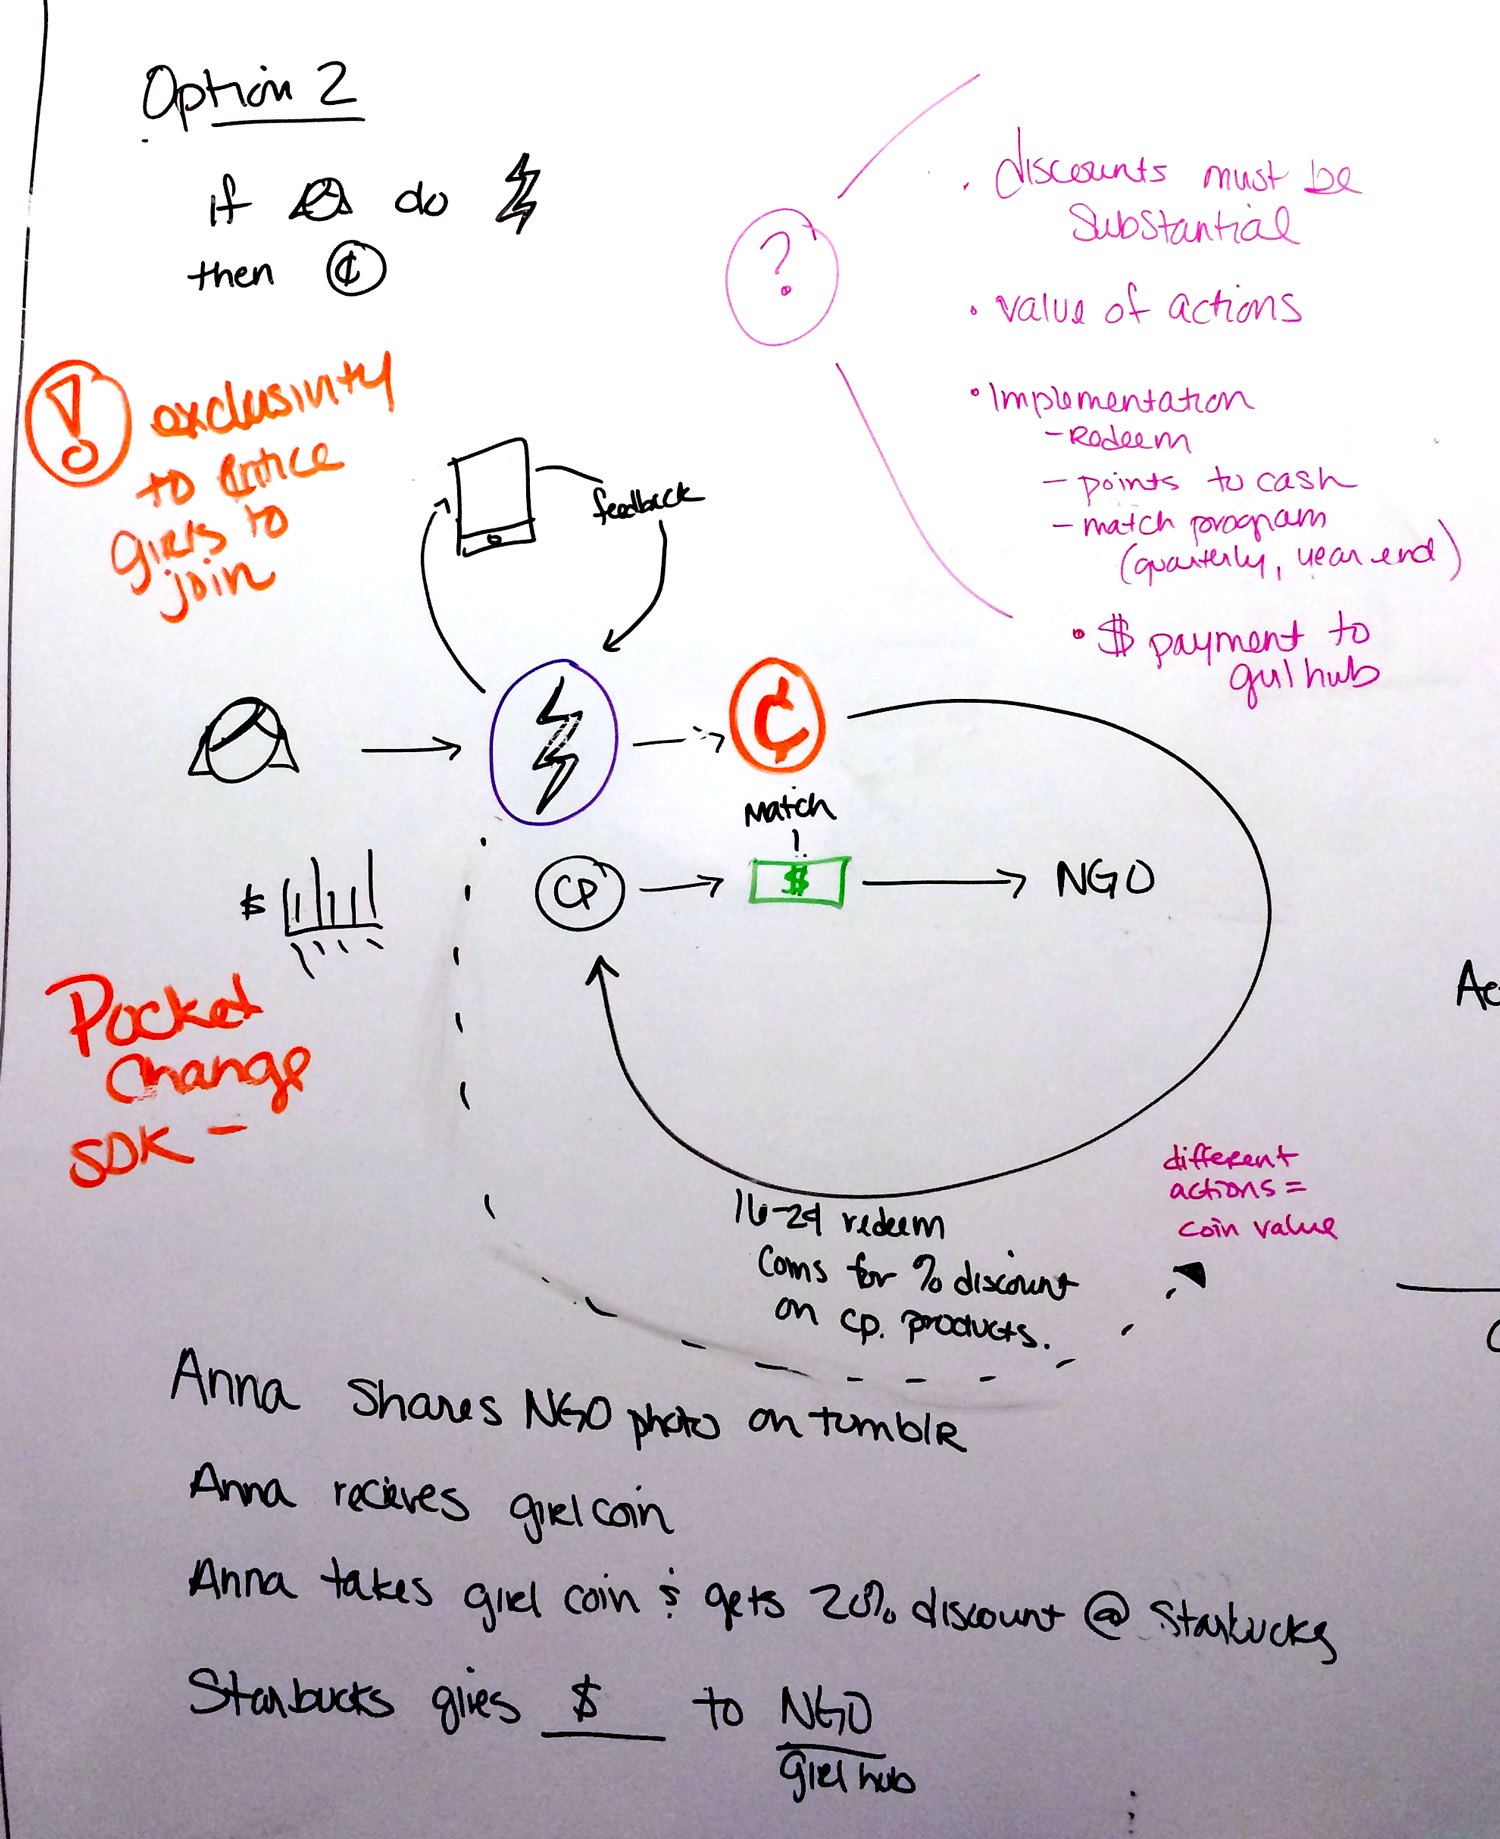 Option 2
if do
then ¢
?
• discounts must be
substantial
• value of actions
• Implementation
- Redeem
- points to cash
- match program
(quarterly, year end)
• $ payment to
girl hub
! exclusivity
to entice
girls to
join
feedback
¢
Match
$
CP
$
NGO
Pocket
Change
SDK -
16-24 redeem
Coins for % discount
on cp. products.
different
actions =
coin value
Anna shares NGO photo on tumblr
Anna recieves girl coin
Anna takes girl coin & gets 20% discount @ Starbucks
Starbucks gives $ to NGO
girl hub